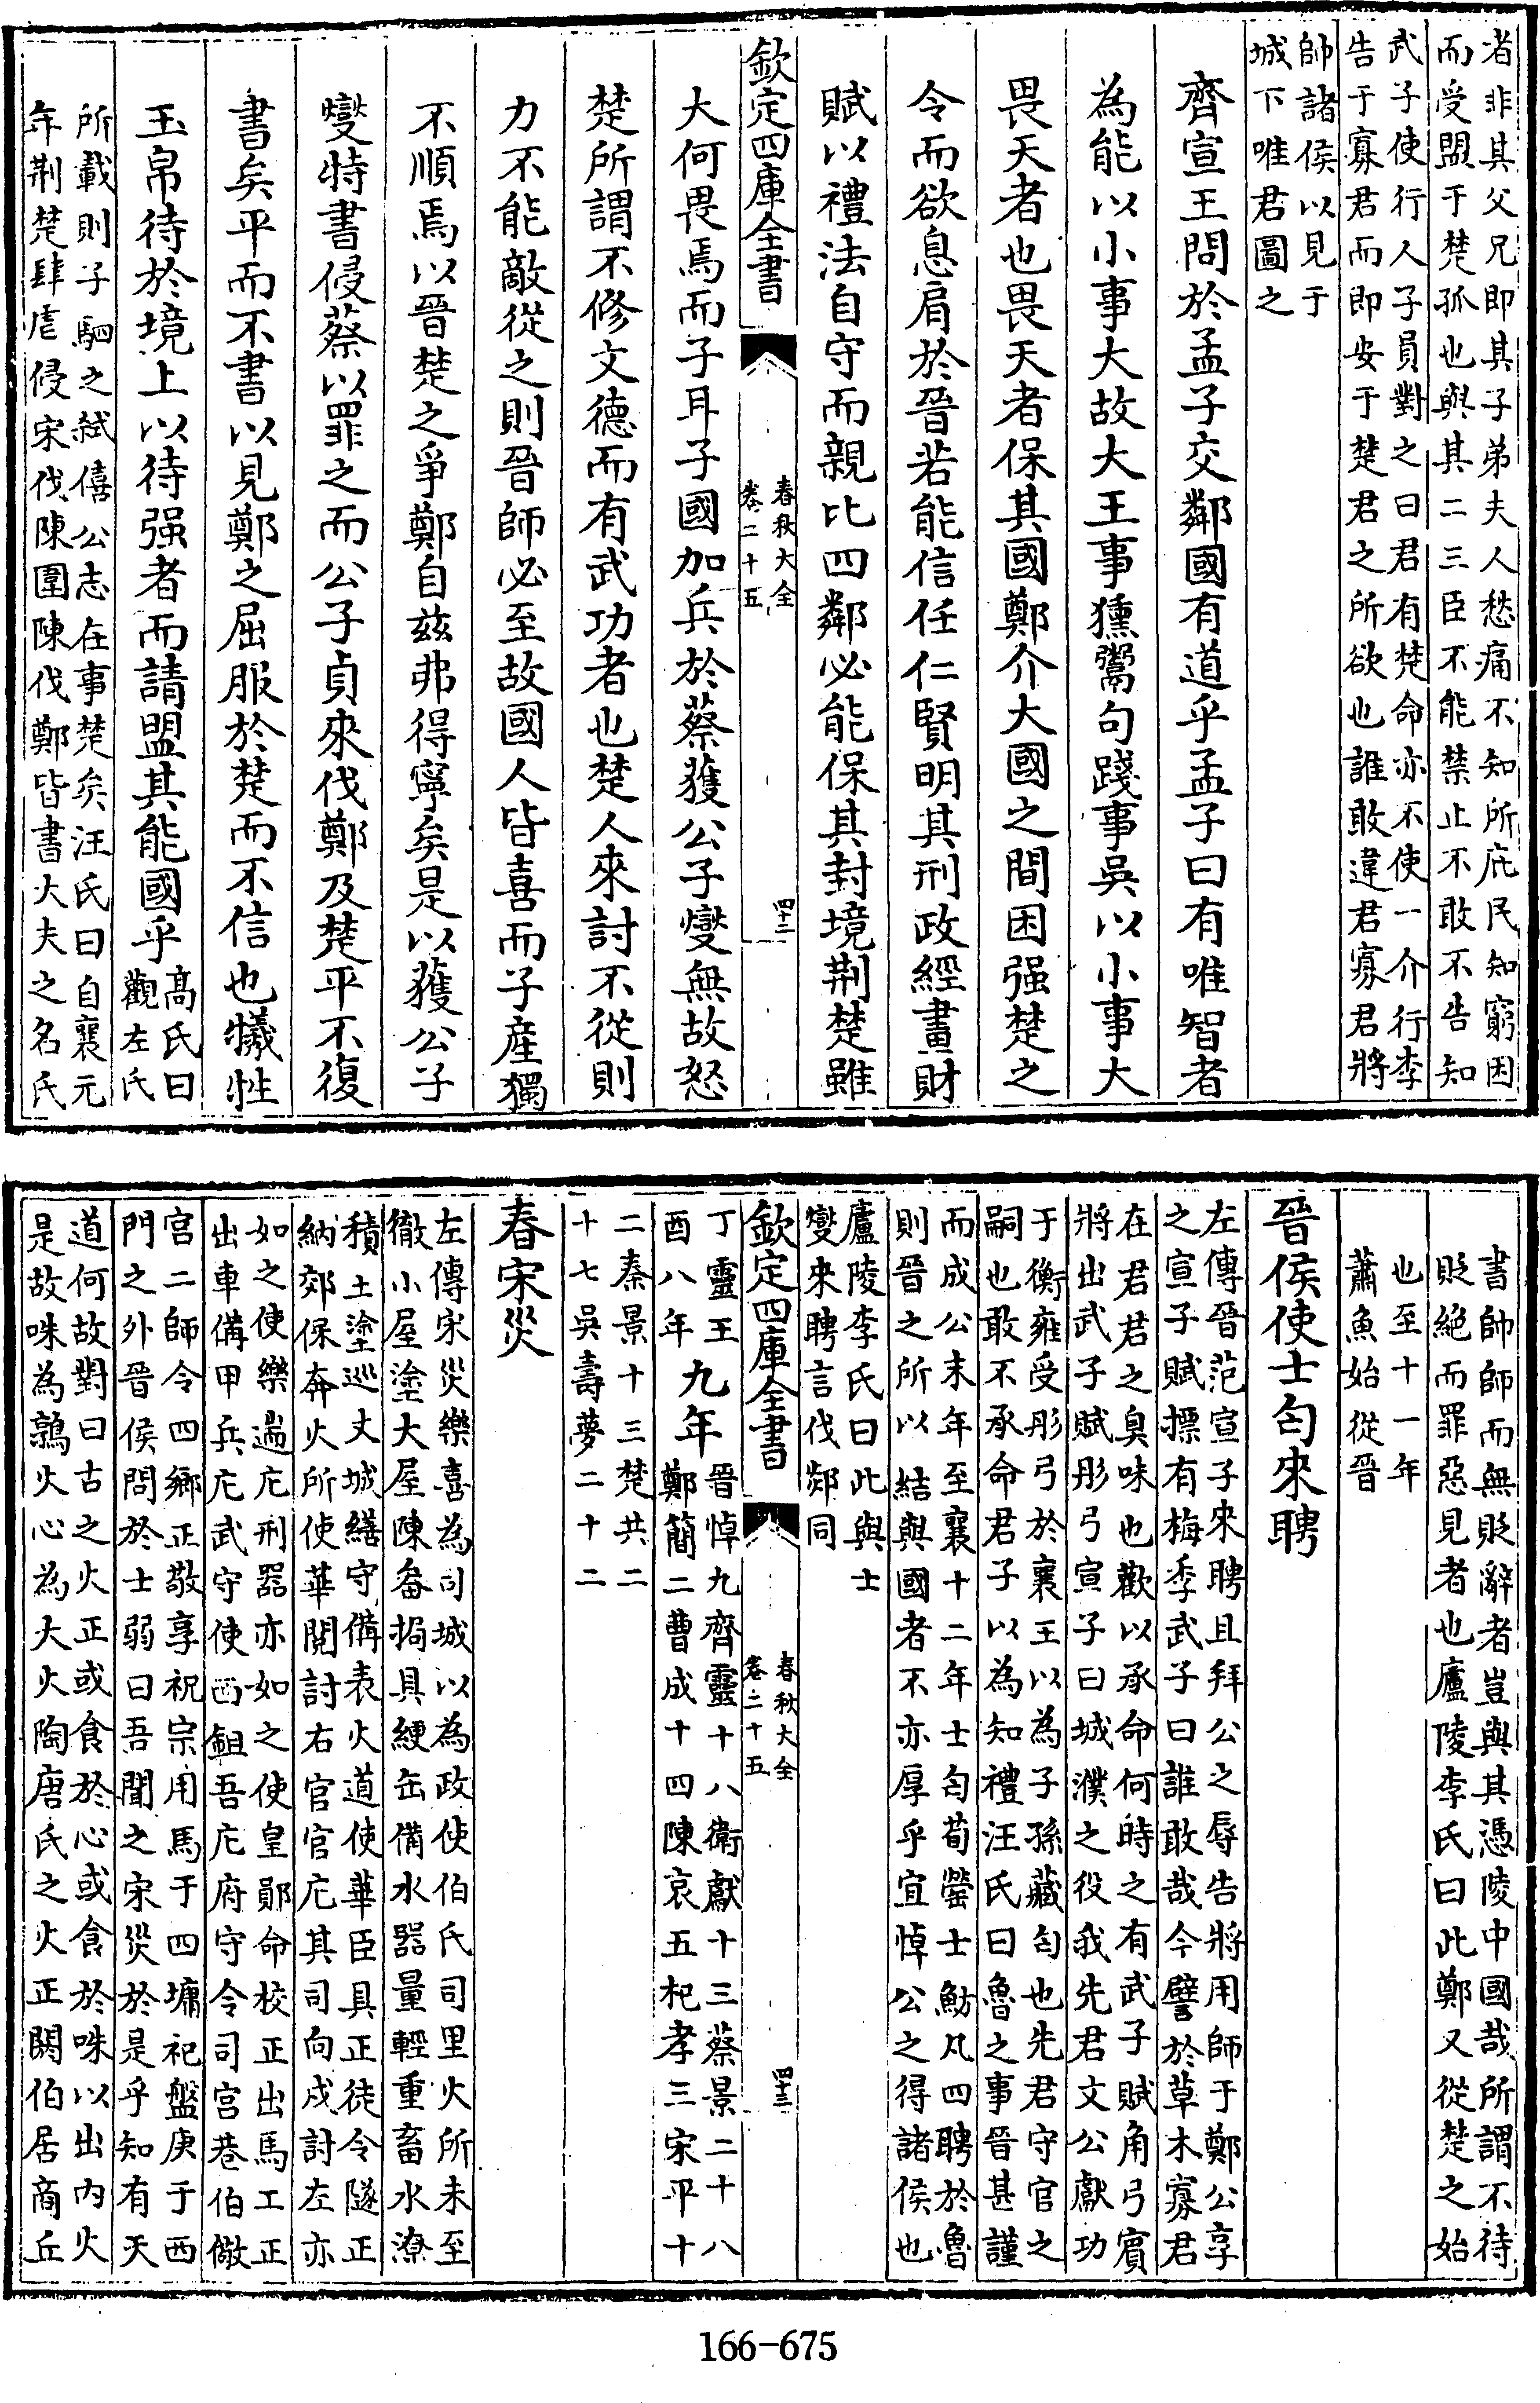 者非其父兄即其子弟夫人愁痛不知所庇民知窮困
而受盟于楚孤也與其二三臣不能禁止不敢不告知
武子使行人子員對之曰君有楚命亦不使一介行李
告于寡君而即安于楚君之所欲也誰敢違君寡君將
帥諸侯以見于
城下唯君圖之
齊宣王問於孟子交鄰國有道乎孟子曰有唯智者
為能以小事大故大王事獯鬻句踐事吳以小事大
畏天者也畏天者保其國鄭介大國之間困强楚之
令而欲息肩於晉若能信任仁賢明其刑政經畫財
賦以禮法自守而親比四鄰必能保其封境荆楚雖
欽定四庫全書
春秋大全
卷二十五
四十二
大何畏焉而子耳子國加兵於蔡獲公子燮無故怒
楚所謂不修文德而有武功者也楚人來討不從則
力不能敵從之則晉師必至故國人皆喜而子產獨
不順焉以晉楚之爭鄭自兹弗得寧矣是以獲公子
燮特書侵蔡以罪之而公子貞來伐鄭及楚平不復
書矣平而不書以見鄭之屈服於楚而不信也犧牲
玉帛待於境上以待强者而請盟其能國乎
高氏曰
觀左氏
所載則子駟之弑僖公志在事楚矣汪氏曰自襄元
年荆楚肆虐侵宋伐陳圍陳伐鄭皆書大夫之名氏
書帥師而無貶辭者豈與其憑陵中國哉所謂不待
貶絶而罪惡見者也廬陵李氏曰此鄭又從楚之始
也至十一年
蕭魚始從晉
晉侯使士匄來聘
左傳晉范宣子來聘且拜公之辱告將用師于鄭公享
之宣子賦摽有梅季武子曰誰敢哉今譬於草木寡君
在君君之臭味也歡以承命何時之有武子賦角弓賓
將出武子賦彤弓宣子曰城濮之役我先君文公獻功
于衡雍受彤弓於襄王以為子孫藏匄也先君守官之
嗣也敢不承命君子以為知禮汪氏曰魯之事晉甚謹
而成公末年至襄十二年士匄荀罃士魴凡四聘於魯
則晉之所以結與國者不亦厚乎宜悼公之得諸侯也
廬陵李氏曰此與士
燮來聘言伐郯同
欽定四庫全書
春秋大全
卷二十五
四十三
丁靈王
酉八年
九年
晉悼九齊靈十八衛獻十三蔡景二十八
鄭簡二曹成十四陳哀五杞孝三宋平十
二秦景十三楚共二
十七吳壽夢二十二
春宋災
左傳宋災樂喜為司城以為政使伯氏司里火所未至
徹小屋塗大屋陳畚挶具綆缶備水器量輕重畜水潦
積土塗巡丈城繕守備表火道使華臣具正徒令隧正
納郊保奔火所使華閱討右官官庀其司向戌討左亦
如之使樂遄庀刑器亦如之使皇鄖命校正出馬工正
出車備甲兵庀武守使西鉏吾庀府守令司宫巷伯儆
宫二師令四鄉正敬享祝宗用馬于四墉祀盤庚于西
門之外晉侯問於士弱曰吾聞之宋災於是乎知有天
道何故對曰古之火正或食於心或食於咮以出内火
是故咮為鶉火心為大火陶唐氏之火正閼伯居商丘
166-675